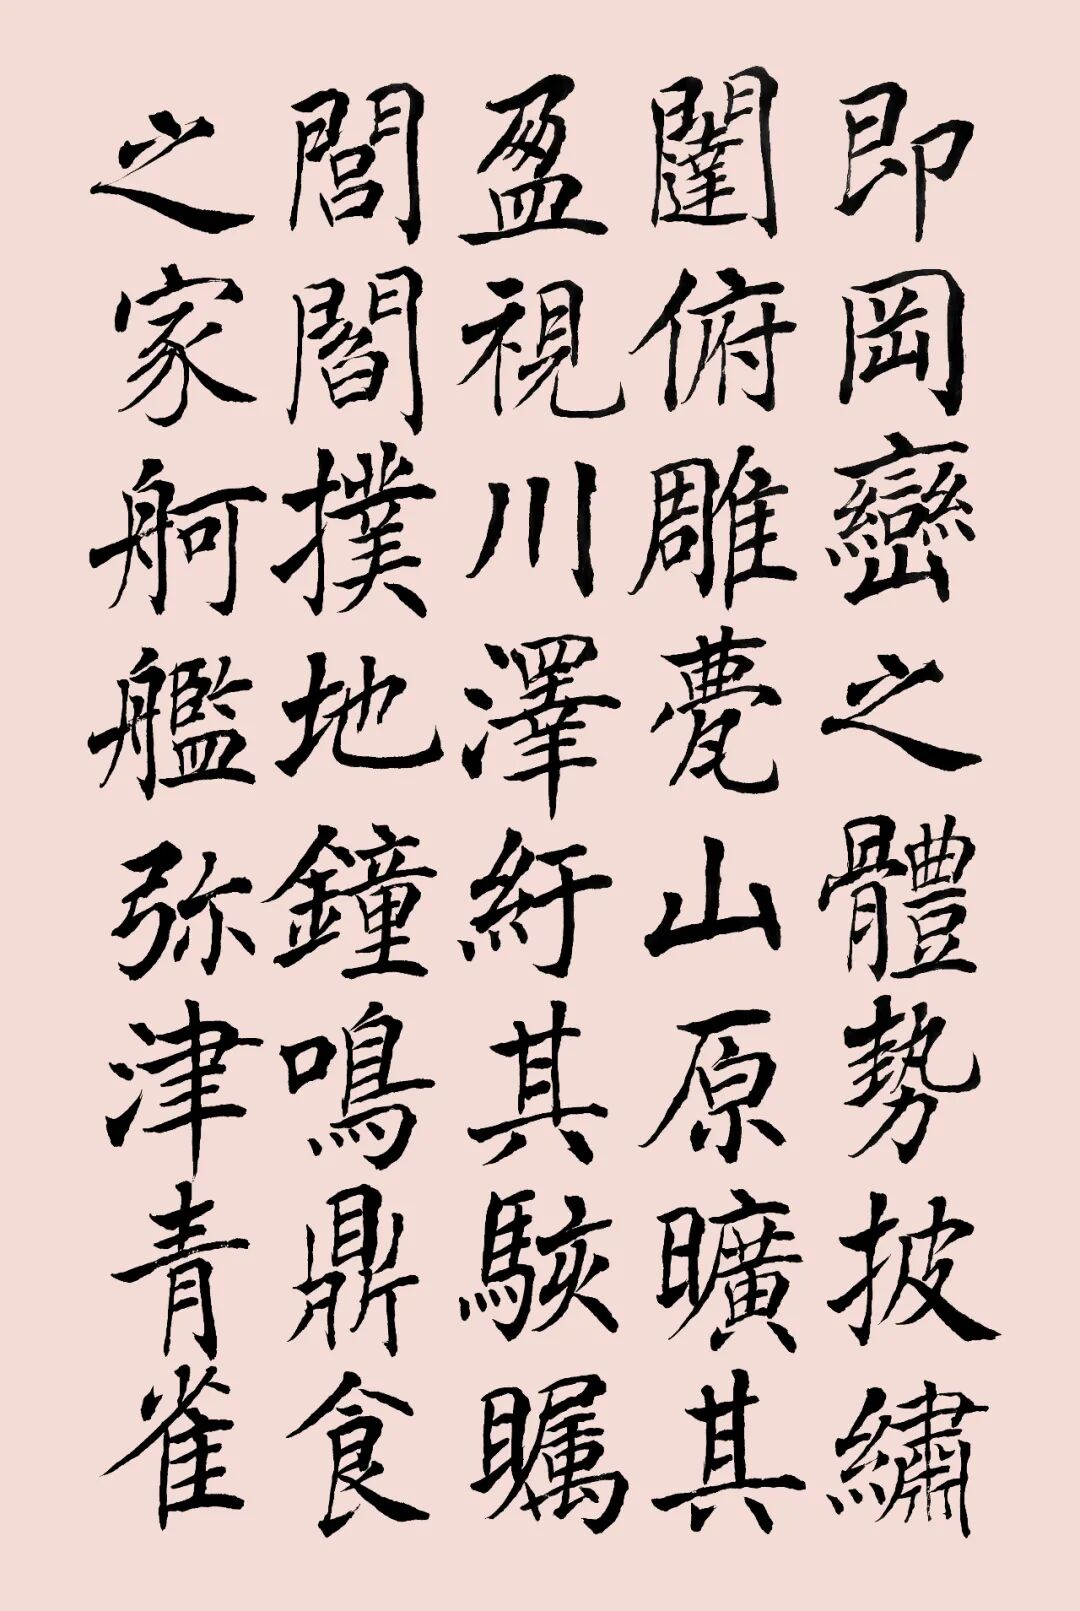 即岡巒之體勢披繡
闥俯雕甍山原曠其
盈視川澤紆其駭矚
閭閻撲地鐘鳴鼎食
之家舸艦弥津青雀